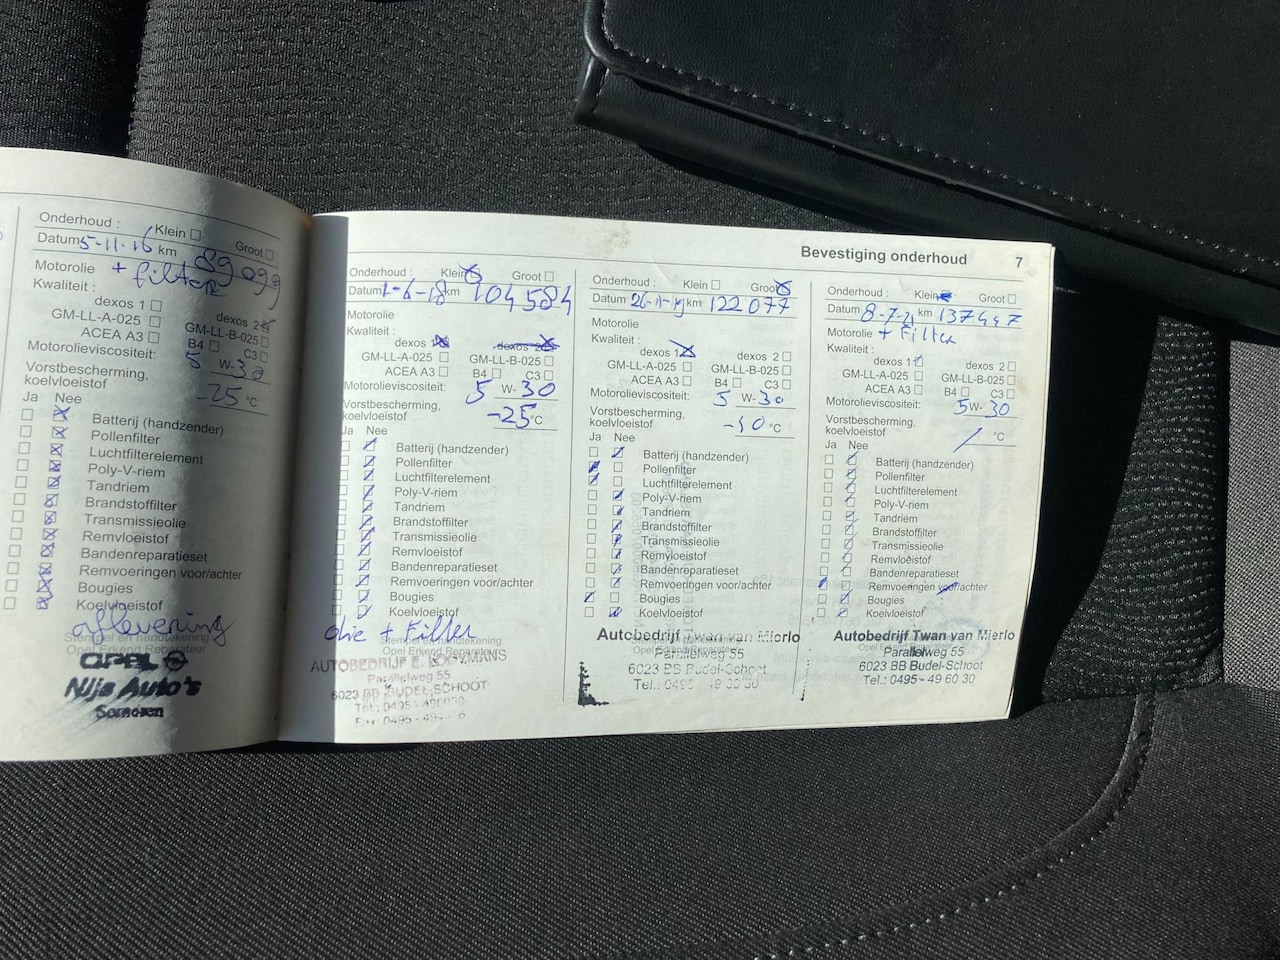 Onderhoud : Klein Groot
Datum 5-11-16 km 89 099
Motorolie + filter
Kwaliteit :
dexos 1 dexos 2
GM-LL-A-025 GM-LL-B-025
ACEA A3 B4 C3
Motorolieviscositeit: 5 W-30
Vorstbescherming,
koelvloeistof -25 °C
Ja Nee
Batterij (handzender)
Pollenfilter
Luchtfilterelement
Poly-V-riem
Tandriem
Brandstoffilter
Transmissieolie
Remvloeistof
Bandenreparatieset
Remvoeringen voor/achter
Bougies
Koelvloeistof
aflevering
Stempel en handtekening
Opel Erkend Reparateur
OPEL
Nijs Auto's
Someren
Bevestiging onderhoud 7
Onderhoud : Klein Groot
Datum 1-6-18 km 104 584
Motorolie
Kwaliteit :
dexos 1 dexos 2
GM-LL-A-025 GM-LL-B-025
ACEA A3 B4 C3
Motorolieviscositeit: 5 W-30
Vorstbescherming,
koelvloeistof -25 °C
Ja Nee
Batterij (handzender)
Pollenfilter
Luchtfilterelement
Poly-V-riem
Tandriem
Brandstoffilter
Transmissieolie
Remvloeistof
Bandenreparatieset
Remvoeringen voor/achter
Bougies
Koelvloeistof
olie + Filter
Stempel en handtekening
Opel Erkend Reparateur
AUTOBEDRIJF E.
Parallelweg 55
6023 BB BUDEL-SCHOOT
Tel.: 0495 -
Fax: 0495 -
Onderhoud : Klein Groot
Datum 26-11-19 km 122 077
Motorolie
Kwaliteit :
dexos 1 dexos 2
GM-LL-A-025 GM-LL-B-025
ACEA A3 B4 C3
Motorolieviscositeit: 5 W-30
Vorstbescherming,
koelvloeistof -40 °C
Ja Nee
Batterij (handzender)
Pollenfilter
Luchtfilterelement
Poly-V-riem
Tandriem
Brandstoffilter
Transmissieolie
Remvloeistof
Bandenreparatieset
Remvoeringen voor/achter
Bougies
Koelvloeistof
Autobedrijf Twan van Mierlo
Opel Erkend Reparateur
Parallelweg 55
6023 BB Budel-Schoot
Tel.: 0495 - 49 60 30
Onderhoud : Klein Groot
Datum 8-7-21 km 137447
Motorolie + Filter
Kwaliteit :
dexos 1 dexos 2
GM-LL-A-025 GM-LL-B-025
ACEA A3 B4 C3
Motorolieviscositeit: 5W-30
Vorstbescherming,
koelvloeistof / °C
Ja Nee
Batterij (handzender)
Pollenfilter
Luchtfilterelement
Poly-V-riem
Tandriem
Brandstoffilter
Transmissieolie
Remvloeistof
Bandenreparatieset
Remvoeringen voor/achter
Bougies
Koelvloeistof
Autobedrijf Twan van Mierlo
Parallelweg 55
6023 BB Budel-Schoot
Tel.: 0495 - 49 60 30